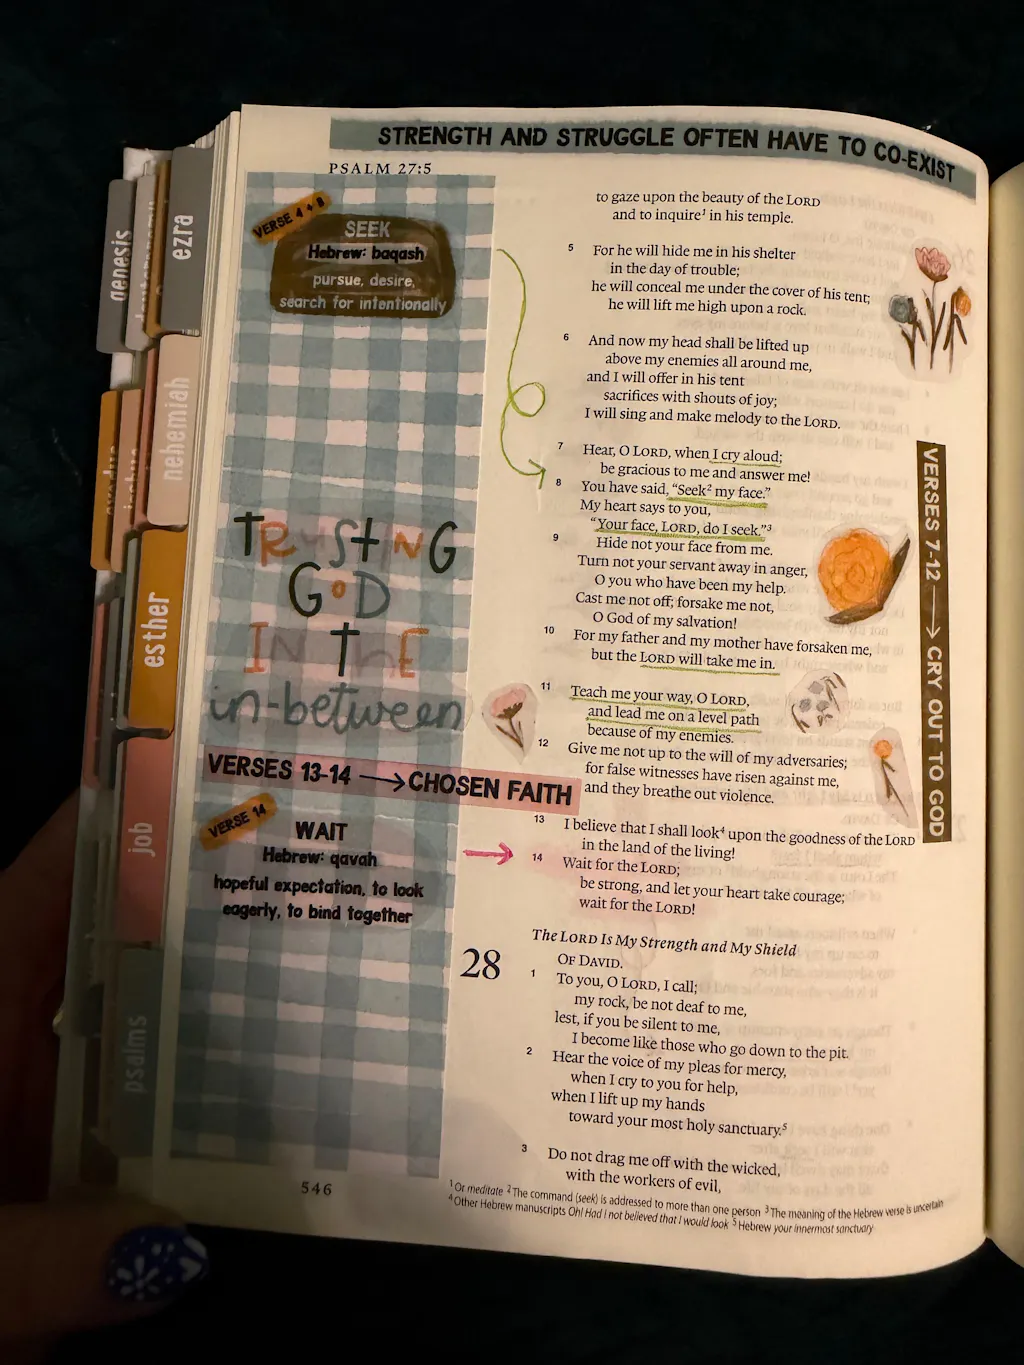 STRENGTH AND STRUGGLE OFTEN HAVE TO CO-EXIST
PSALM 27:5
VERSE 4 + 8
SEEK
Hebrew: baqash
pursue, desire,
search for intentionally
TRUSTING
GOD
IN THE
in-between
VERSES 13-14 → CHOSEN FAITH
VERSE 14
WAIT
Hebrew: qavah
hopeful expectation, to look
eagerly, to bind together
to gaze upon the beauty of the LORD
and to inquire¹ in his temple.
5 For he will hide me in his shelter
in the day of trouble;
he will conceal me under the cover of his tent;
he will lift me high upon a rock.
6 And now my head shall be lifted up
above my enemies all around me,
and I will offer in his tent
sacrifices with shouts of joy;
I will sing and make melody to the LORD.
7 Hear, O LORD, when I cry aloud;
be gracious to me and answer me!
8 You have said, “Seek² my face.”
My heart says to you,
“Your face, LORD, do I seek.”³
9 Hide not your face from me.
Turn not your servant away in anger,
O you who have been my help.
Cast me not off; forsake me not,
O God of my salvation!
10 For my father and my mother have forsaken me,
but the LORD will take me in.
11 Teach me your way, O LORD,
and lead me on a level path
because of my enemies.
12 Give me not up to the will of my adversaries;
for false witnesses have risen against me,
and they breathe out violence.
13 I believe that I shall look⁴ upon the goodness of the LORD
in the land of the living!
14 Wait for the LORD;
be strong, and let your heart take courage;
wait for the LORD!
VERSES 7-12 → CRY OUT TO GOD
The LORD Is My Strength and My Shield
28 OF DAVID.
1 To you, O LORD, I call;
my rock, be not deaf to me,
lest, if you be silent to me,
I become like those who go down to the pit.
2 Hear the voice of my pleas for mercy,
when I cry to you for help,
when I lift up my hands
toward your most holy sanctuary.⁵
3 Do not drag me off with the wicked,
with the workers of evil,
546
¹ Or meditate ² The command (seek) is addressed to more than one person ³ The meaning of the Hebrew verse is uncertain
⁴ Other Hebrew manuscripts Oh! Had I not believed that I would look ⁵ Hebrew your innermost sanctuary
genesis
ezra
nehemiah
esther
job
psalms